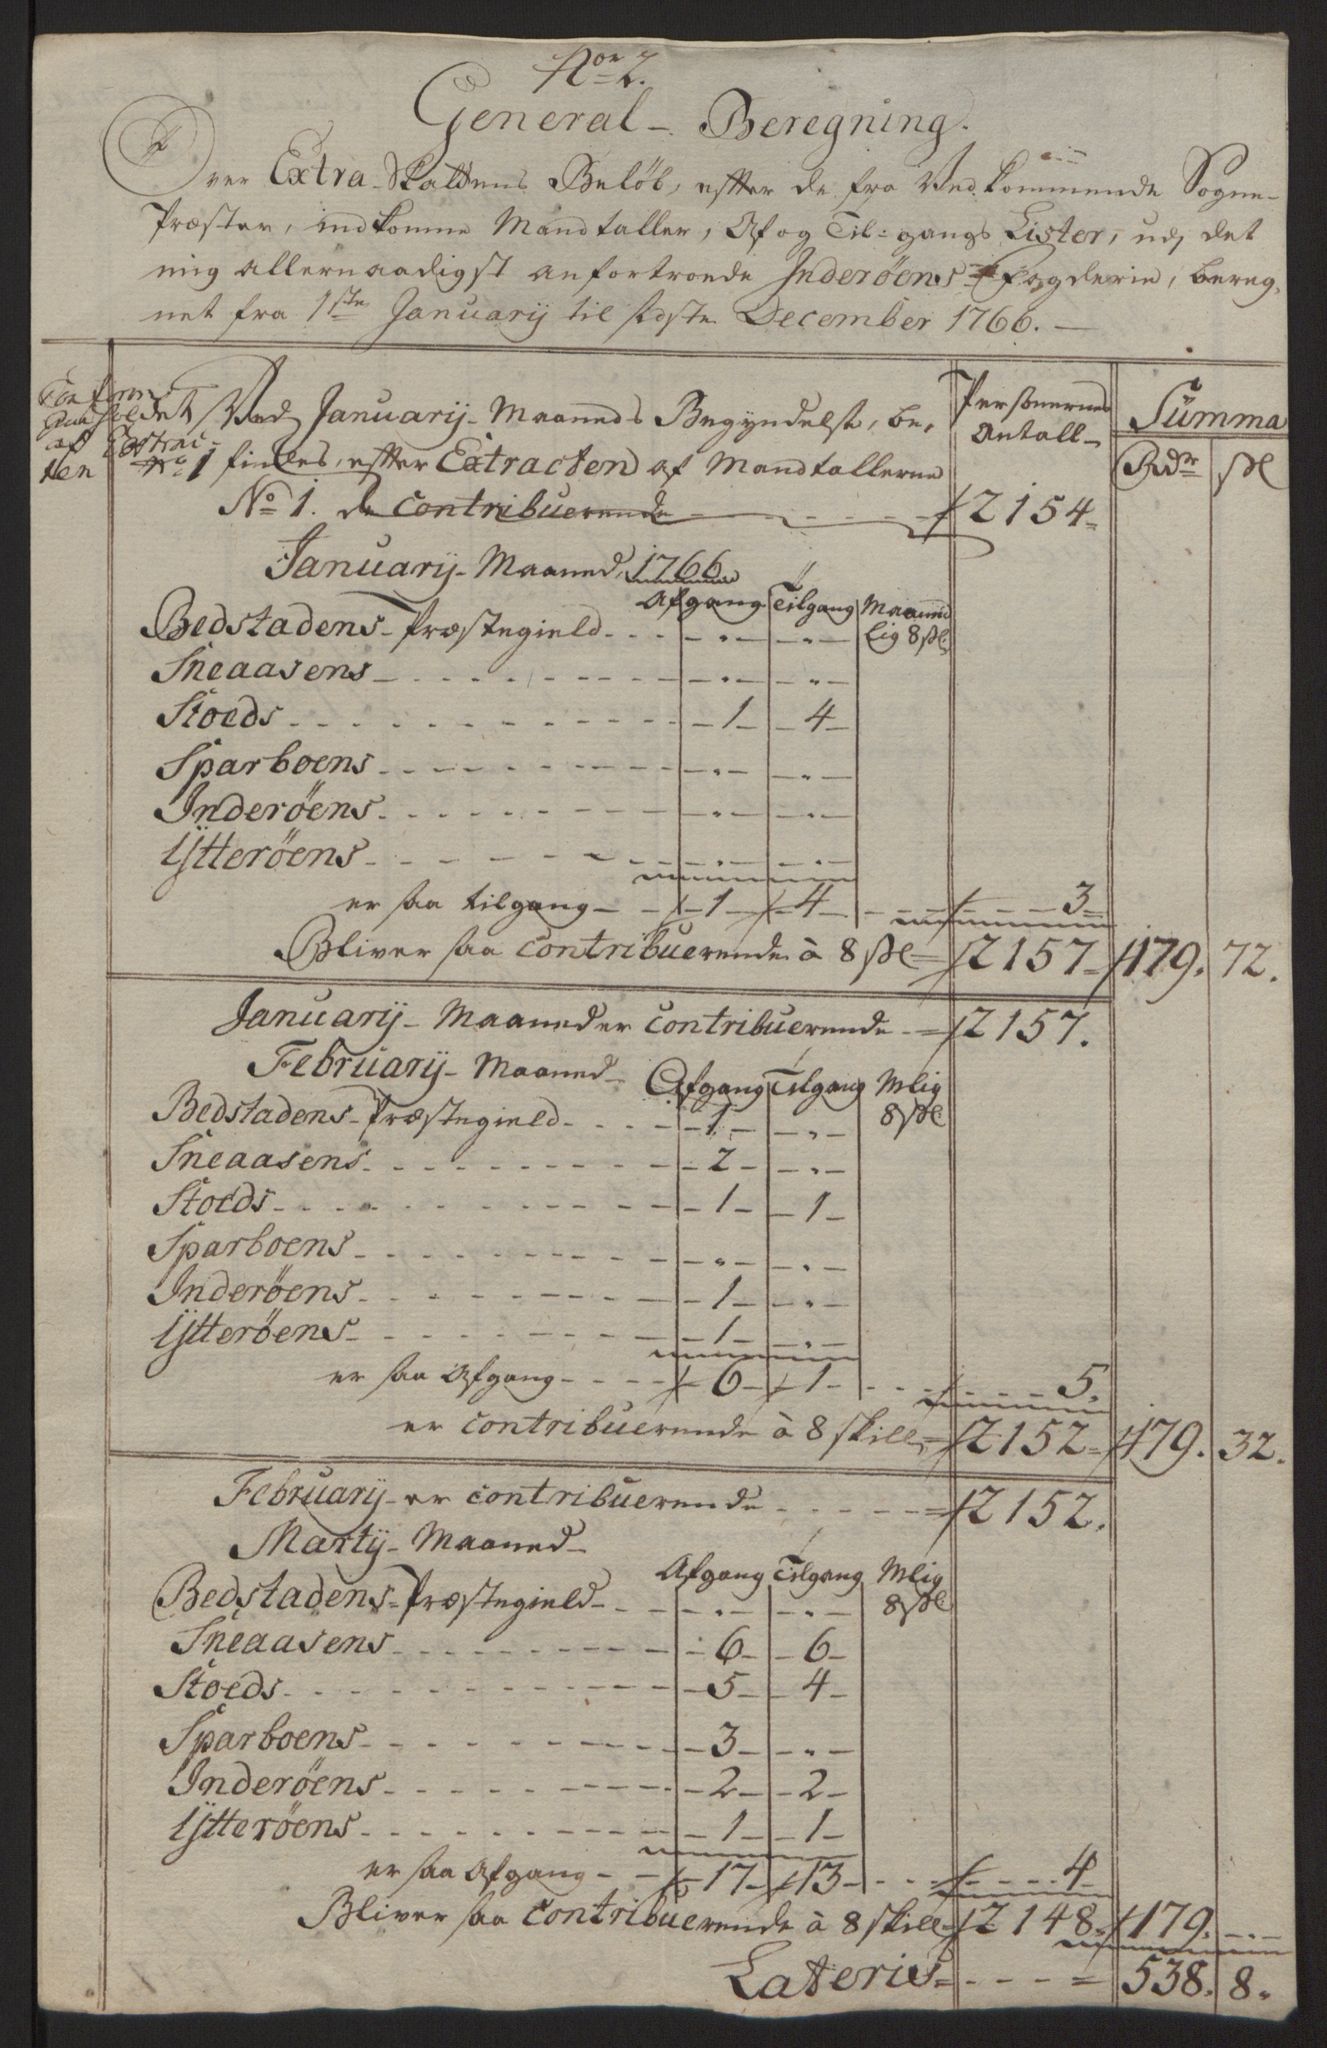 No 2.
General - Beregning.
Over Extra-Skattens Beløb, efter de fra Vedkommende Sogne-
Præster, indkomne Mandtaller, Af og Til-gangs Lister, udj det
mig allernaadigst anfortroede Inderøens Fogderie, bereg-
net fra 1ste Januarij til sidste December 1766.
Personernes Antall
Summa
Rdr
sk
af Extrac-
ten No 1
Ved Januarij-Maaneds Begyndelse, be-
findes, efter Extracten af Mandtallerne
No 1. de contribuerende - - - 2154
Januarij-Maaned, 1766
Afgang Tilgang Maaned
Bedstadens-Præstegield - - " - - " - lig 8 sk
Sneaasens - - " - - " -
Stoeds - - 1 - 4 -
Sparboens - - " - - " -
Inderøens - - " - - " -
Ytterøens - - " - - " -
er saa tilgang - 1 - 4 - - - 3
Bliver saa contribuerende à 8 sk 2157 179. 72.
Januarij-Maaned er contribuerende - 2157.
Februarij-Maaned - Afgang Tilgang Mlig
Bedstadens-Præstegield - - 1 - - " - 8 sk
Sneaasens - - 2 - - " -
Stoeds - - 1 - 1 -
Sparboens - - " - - " -
Inderøens - - 1 - - " -
Ytterøens - - 1 - - " -
er saa Afgang - - 6 - 1 - - - 5.
er contribuerende à 8 skill 2152 179. 32.
Februarij-er contribuerende - - - 2152.
Martij-Maaned-
Afgang Tilgang Mlig
Bedstadens-Præstegield - - " - - " - 8 sk
Sneaasens - - 6 - 6 -
Stoeds - - 5 - 4 -
Sparboens - - 3 - - " -
Inderøens - - 2 - 2 -
Ytterøens - - 1 - 1 -
er saa Afgang - - 17 - 13 - - - 4
Bliver saa contribuerende à 8 skill 2148. 179. - " -
Lateris - - - 538. 8.